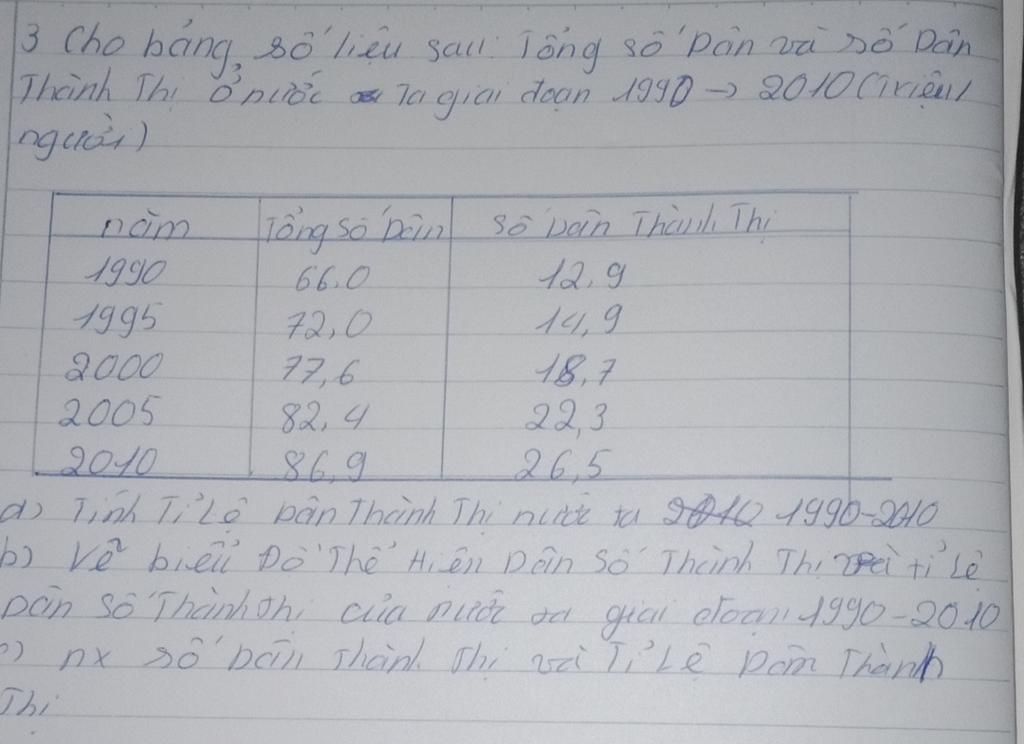 3 Cho bảng, số liệu sau: Tổng số Dân và số Dân
Thành Thị ở nước Ta giai đoạn 1990 → 2010 (Triệu
người)
năm Tổng Số Dân Số Dân Thành Thị
1990 66.0 12,9
1995 72,0 14,9
2000 77,6 18,7
2005 82,4 22,3
2010 86,9 26,5
a) Tính Tỉ Lệ Dân Thành Thị nước ta 2010 1990-2010
b) Vẽ biểu Đồ Thể Hiện Dân Số Thành Thị và tỉ Lệ
Dân Số Thành Thị của nước ta giai đoạn 1990-2010
c) nx số Dân Thành Thị và Tỉ Lệ Dân Thành
Thị